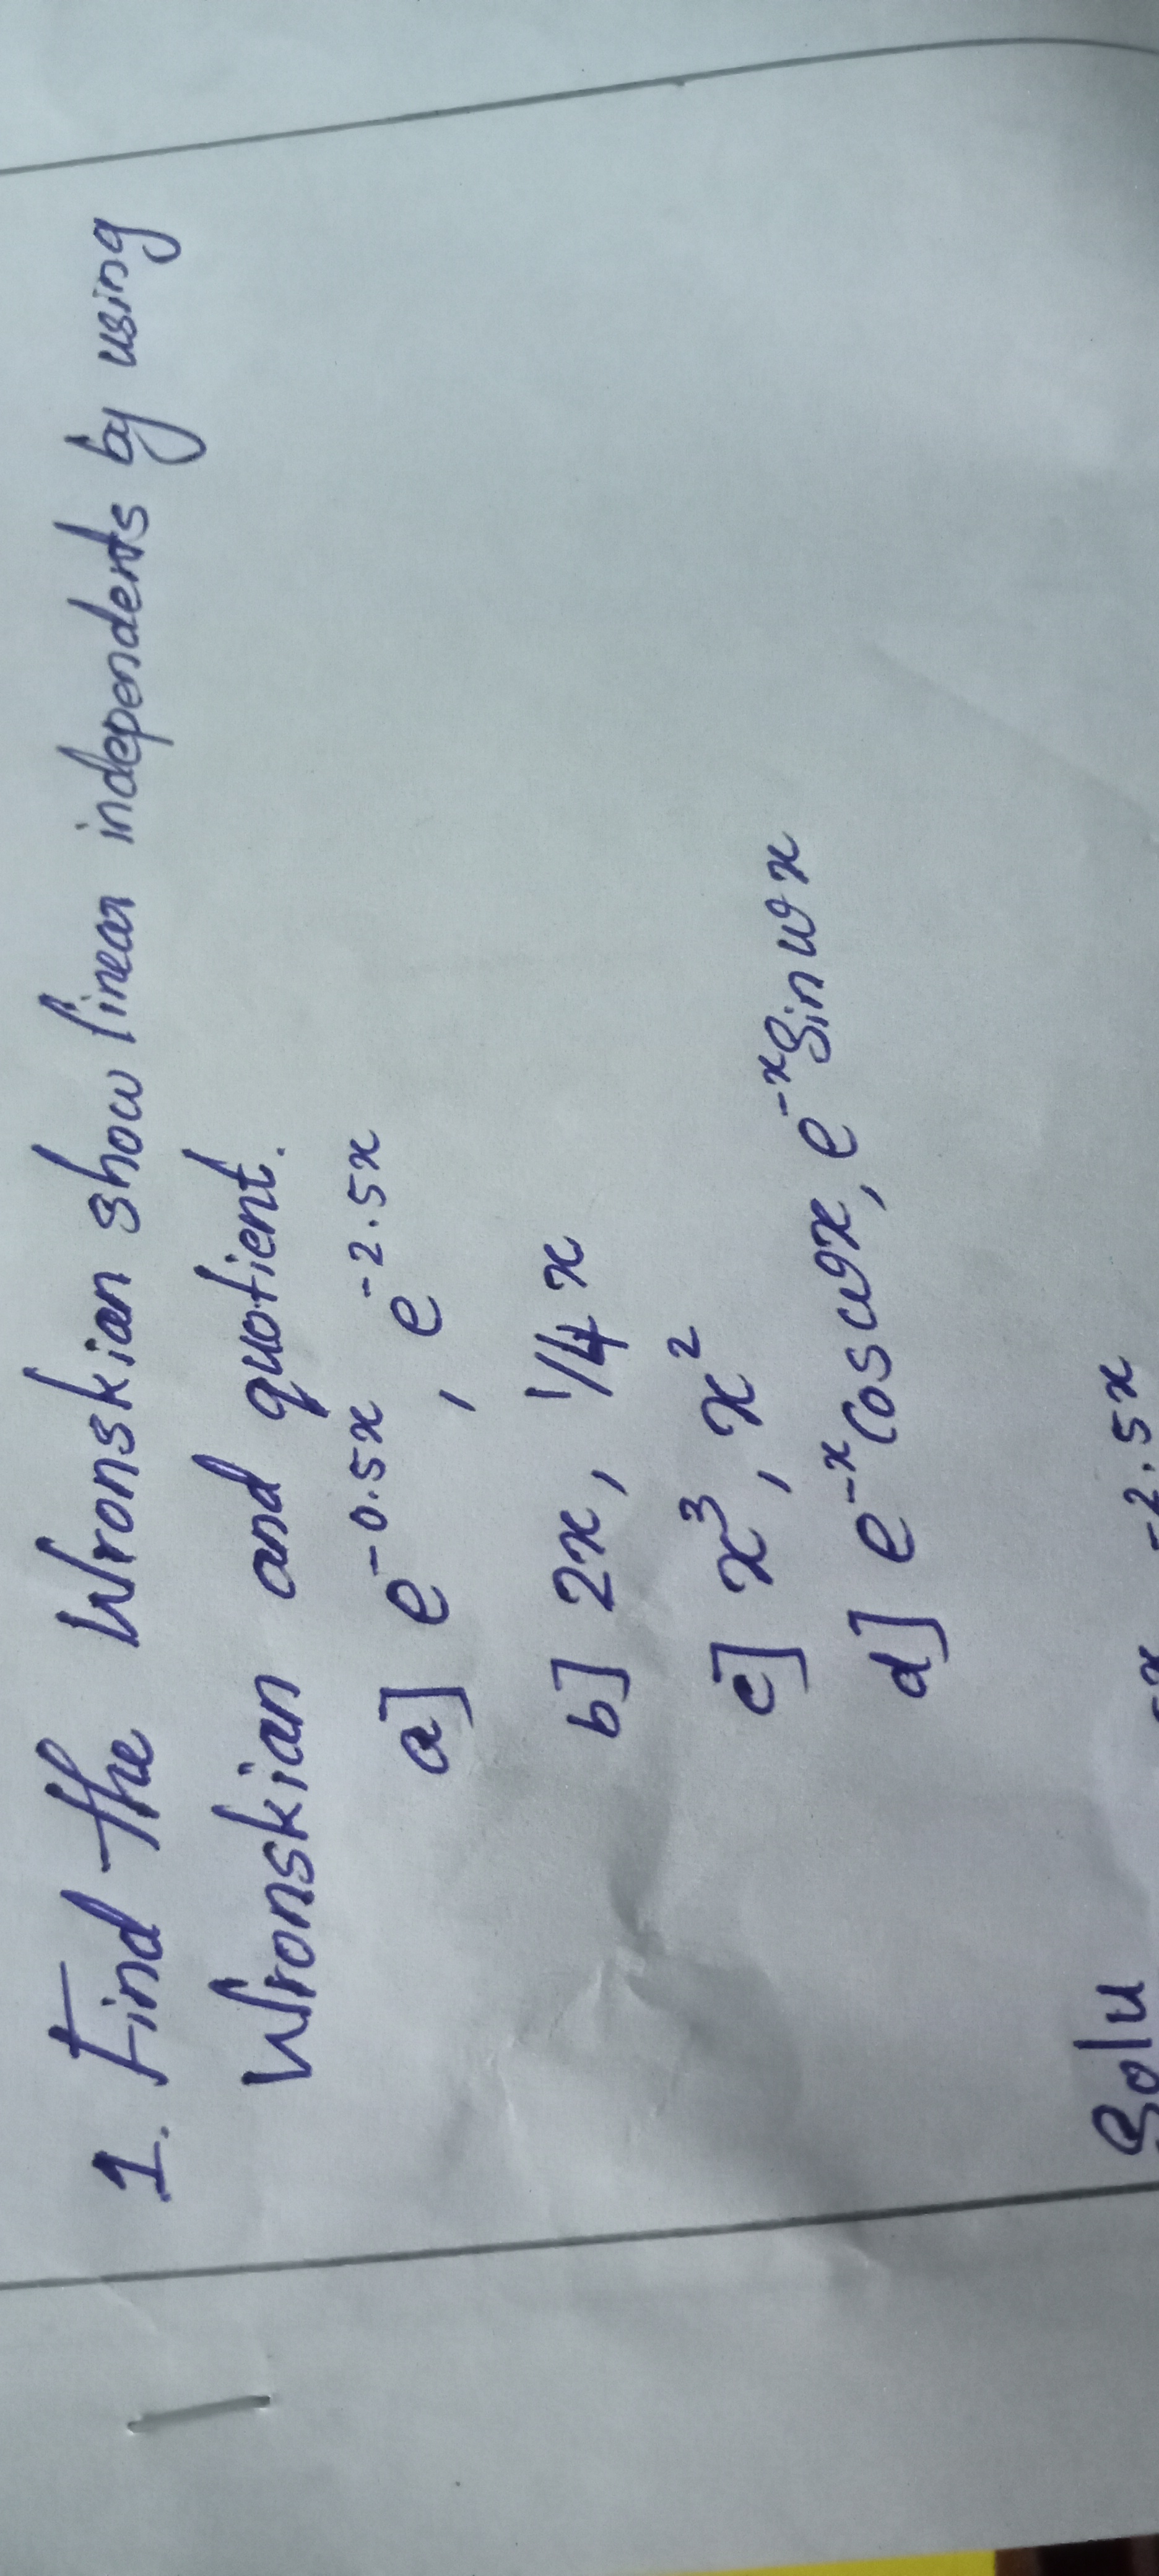 1. Find the Wronskian show linear independents by using
Wronskian and quotient.
a] e^-0.5x, e^-2.5x
b] 2x, 1/4 x
c] x^3, x^2
d] e^-x Cos wx, e^-x Sin wx
Solu
-2.5x